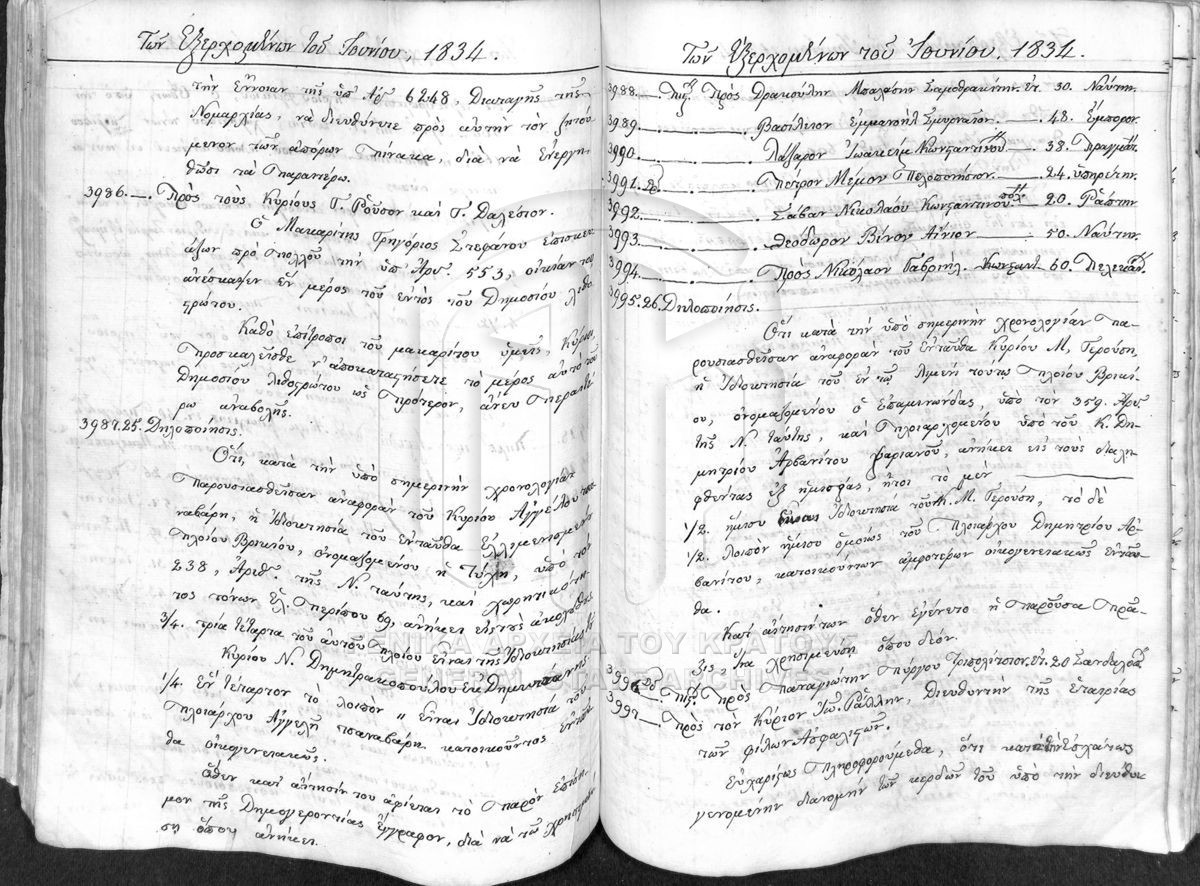 Τῶν Ἐξερχομένων τοῦ Ἰουνίου, 1834.
τὴν ἔννοιαν τῆς ὑπ' Ἀρ. 6248, Διαταγῆς τῆς
Νομαρχίας, νὰ διευθύνετε πρὸς αὐτὴν τὸν ζητού
μενον τῶν ἀπόρων πίνακα, διὰ νὰ ἐνεργη
θῶσι τὰ περαιτέρω.
3986.— Πρὸς τοὺς Κυρίους Γ. Ροῦσον καὶ Γ. Δαλέσιον.
Ὁ Μακαρίτης Γρηγόριος Στεφάνου ἐπισκευ
άζων πρὸ πολλοῦ τὴν ὑπ' Ἀρ. 553, οἰκίαν του
ἀνέσκαψεν ἓν μέρος τοῦ ἐντὸς τοῦ Δημοσίου λιθο
στρώτου.
Καθὸ ἐπίτροποι τοῦ μακαρίτου ὑμεῖς, Κύριοι
προσκαλεῖσθε ν' ἀποκαταστήσετε τὸ μέρος αὐτὸ τοῦ
Δημοσίου λιθοστρώτου ὡς πρότερον, ἄνευ περαιτέ
ρω ἀναβολῆς.
3987.25. Δηλοποίησις.
Ὅτι, κατὰ τὴν ὑπὸ σημερινὴν χρονολογίαν
παρουσιασθεῖσαν ἀναφορὰν τοῦ Κυρίου Ἀγγέλου Πα
ναβάρη, ἡ ἰδιοκτησία τοῦ ἐνταῦθα ἐλλιμενισμένου
πλοίου Βρικίου, ὀνομαζομένου ἡ Τύχη, ὑπὸ τὸν
238, Ἀριθ. τῆς Ν. ταύτης, καὶ χωρητικότη
τος τόνων Ἑλ. περίπου 69, ἀνήκει εἰς τοὺς ἀκολούθους
3/4. τρία τέταρτα τοῦ αὐτοῦ πλοίου εἶναι τῆς ἰδιοκτησίας τοῦ
Κυρίου Ν. Δημητρακοπούλου ἐκ Δημητσάνης
1/4. Ἓν τέταρτον τὸ λοιπὸν εἶναι ἰδιοκτησία τοῦ
πλοιάρχου Ἀγγελῆ Παναβάρη κατοικοῦντος ἐνταῦ
θα οἰκογενειακῶς.
Ὅθεν κατ' αἴτησίν του ἀφίεται τὸ παρὸν ἐπίση
μον τῆς Δημογεροντίας ἔγγραφον, διὰ νὰ τῷ χρησιμεύ
σῃ ὅπου ἀνήκει.
Τῶν Ἐξερχομένων τοῦ Ἰουνίου, 1834.
3988. Πρὸς Δρακούλην Μπαλάσην Σαμοθρακίτην. Ἐτ. 30. Ναύτην.
3989. Βασίλειον Ἐμμανουὴλ Σμυρναῖον. 48. Ἔμπορον.
3990. Λάζαρον Ἰωακεὶμ Κωνσταντινου 38. Πραγματ.
3991. Πέτρον Μέμον Πελοπονήσιον. 24. ὑπηρέτην.
3992. Σάβαν Νικολάου Κωνσταντινουπολ. 20. Ράπτην
3993. Θεόδωρον Βίνον Αἴνιον. 50. Ναύτην.
3994. Πρὸς Νικόλαον Γαβριήλ. Κωνσαντ. 60. Πελεκάν.
3995.26. Δηλοποίησις.
Ὅτι κατὰ τὴν ὑπὸ σημερινὴν χρονολογίαν πα
ρουσιασθεῖσαν ἀναφορὰν τοῦ ἐνταῦθα Κυρίου Μ. Γερούση,
ἡ ἰδιοκτησία τοῦ ἐν τῷ λιμένι τούτῳ πλοίου Βρικί
ου, ὀνομαζομένου ὁ Ἐπαμινώνδας, ὑπὸ τὸν 359. Ἀρ.
τῆς Ν. ταύτης, καὶ πλοιαρχομένου ὑπὸ τοῦ Κ. Δη
μητρίου Ἀρβανίτου ψαριανοῦ, ἀνήκει εἰς τοὺς διαλη
φθέντας ἐξ ἡμισείας, ἤτοι τὸ μὲν
1/2. ἥμισυ εἶναι ἰδιοκτησία τοῦ Κ. Μ. Γερούση, τὸ δὲ
1/2. λοιπὸν ἥμισυ ὁμοίως τοῦ πλοιάρχου Δημητρίου Ἀρ
βανίτου, κατοικούντων ἀμφοτέρων οἰκογενειακῶς ἐνταῦ
θα.
Κατ' αἴτησίν των ὅθεν ἐγένετο ἡ παροῦσα πρᾶ
ξις, ἵνα χρησιμεύσῃ ὅπου δέον.
3996. Πρὸς Παναγιώτην Πύργου Τριπολίτσιον. Ἐτ. 20
3997. Πρὸς τὸν Κύριον Ἰω. Ράλλην, Διευθυντὴν τῆς ἑταιρίας
τῶν φίλων Ἀσφαλιστῶν.
Εὐχαρίστως πληροφορούμεθα, ὅτι κατὰ τὴν ἐσχάτως
γενομένην διανομὴν τῶν κερδῶν τοῦ ὑπὸ τὴν διεύθυ
ΓΕΝΙΚΑ ΑΡΧΕΙΑ ΤΟΥ ΚΡΑΤΟΥΣ
GENERAL STATE ARCHIVES